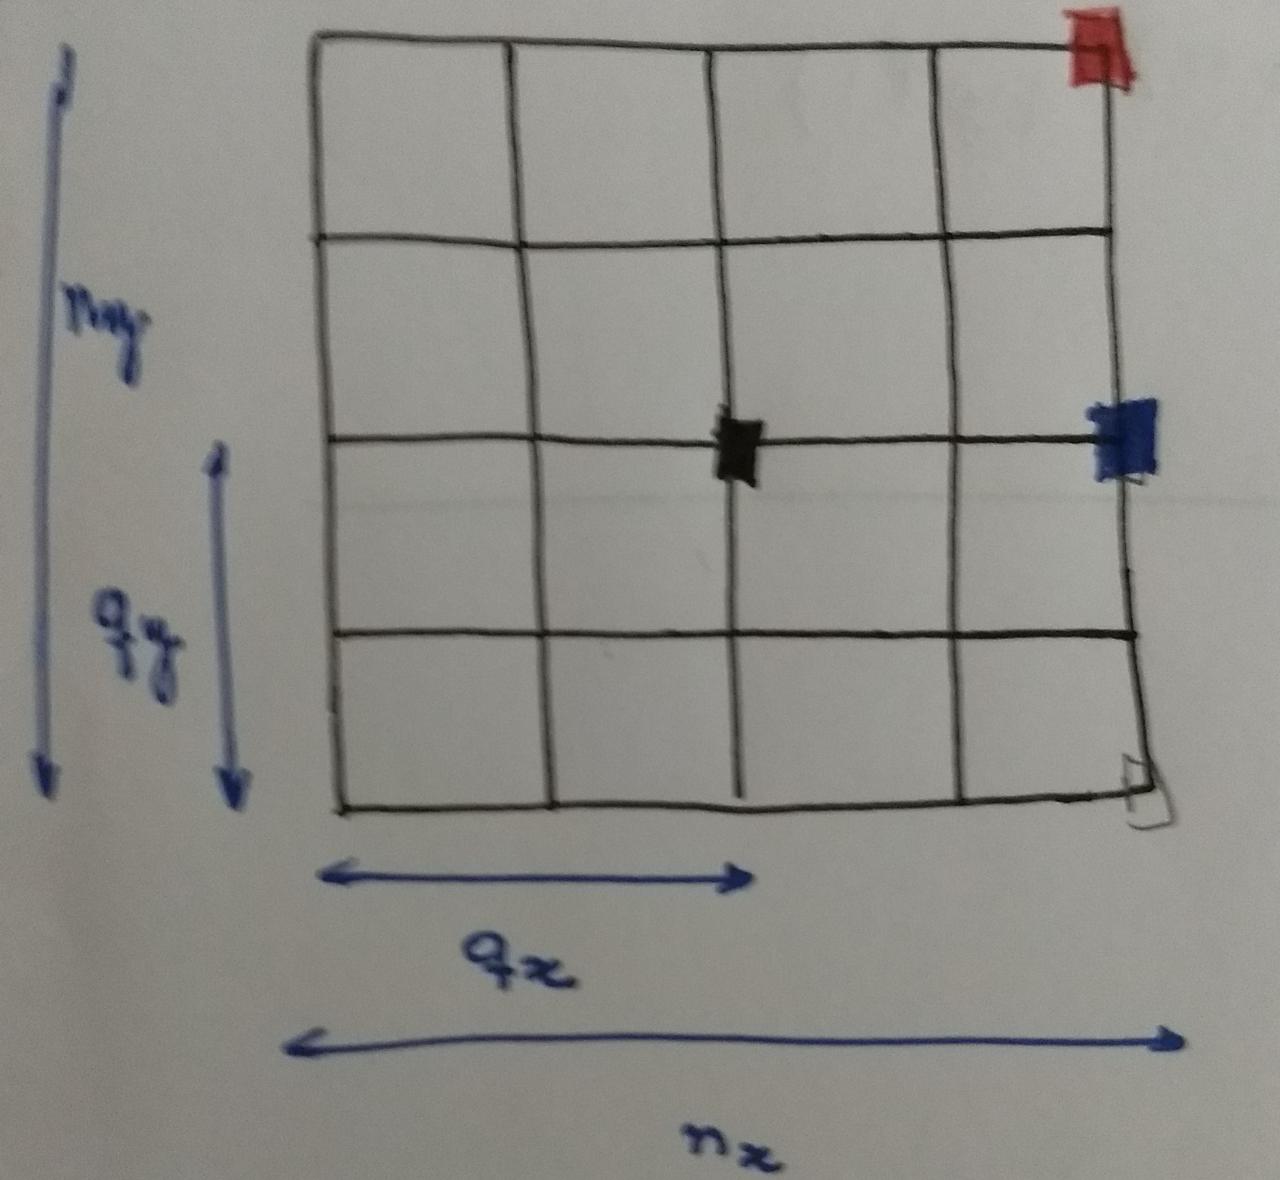 ny
qy
qx
nx